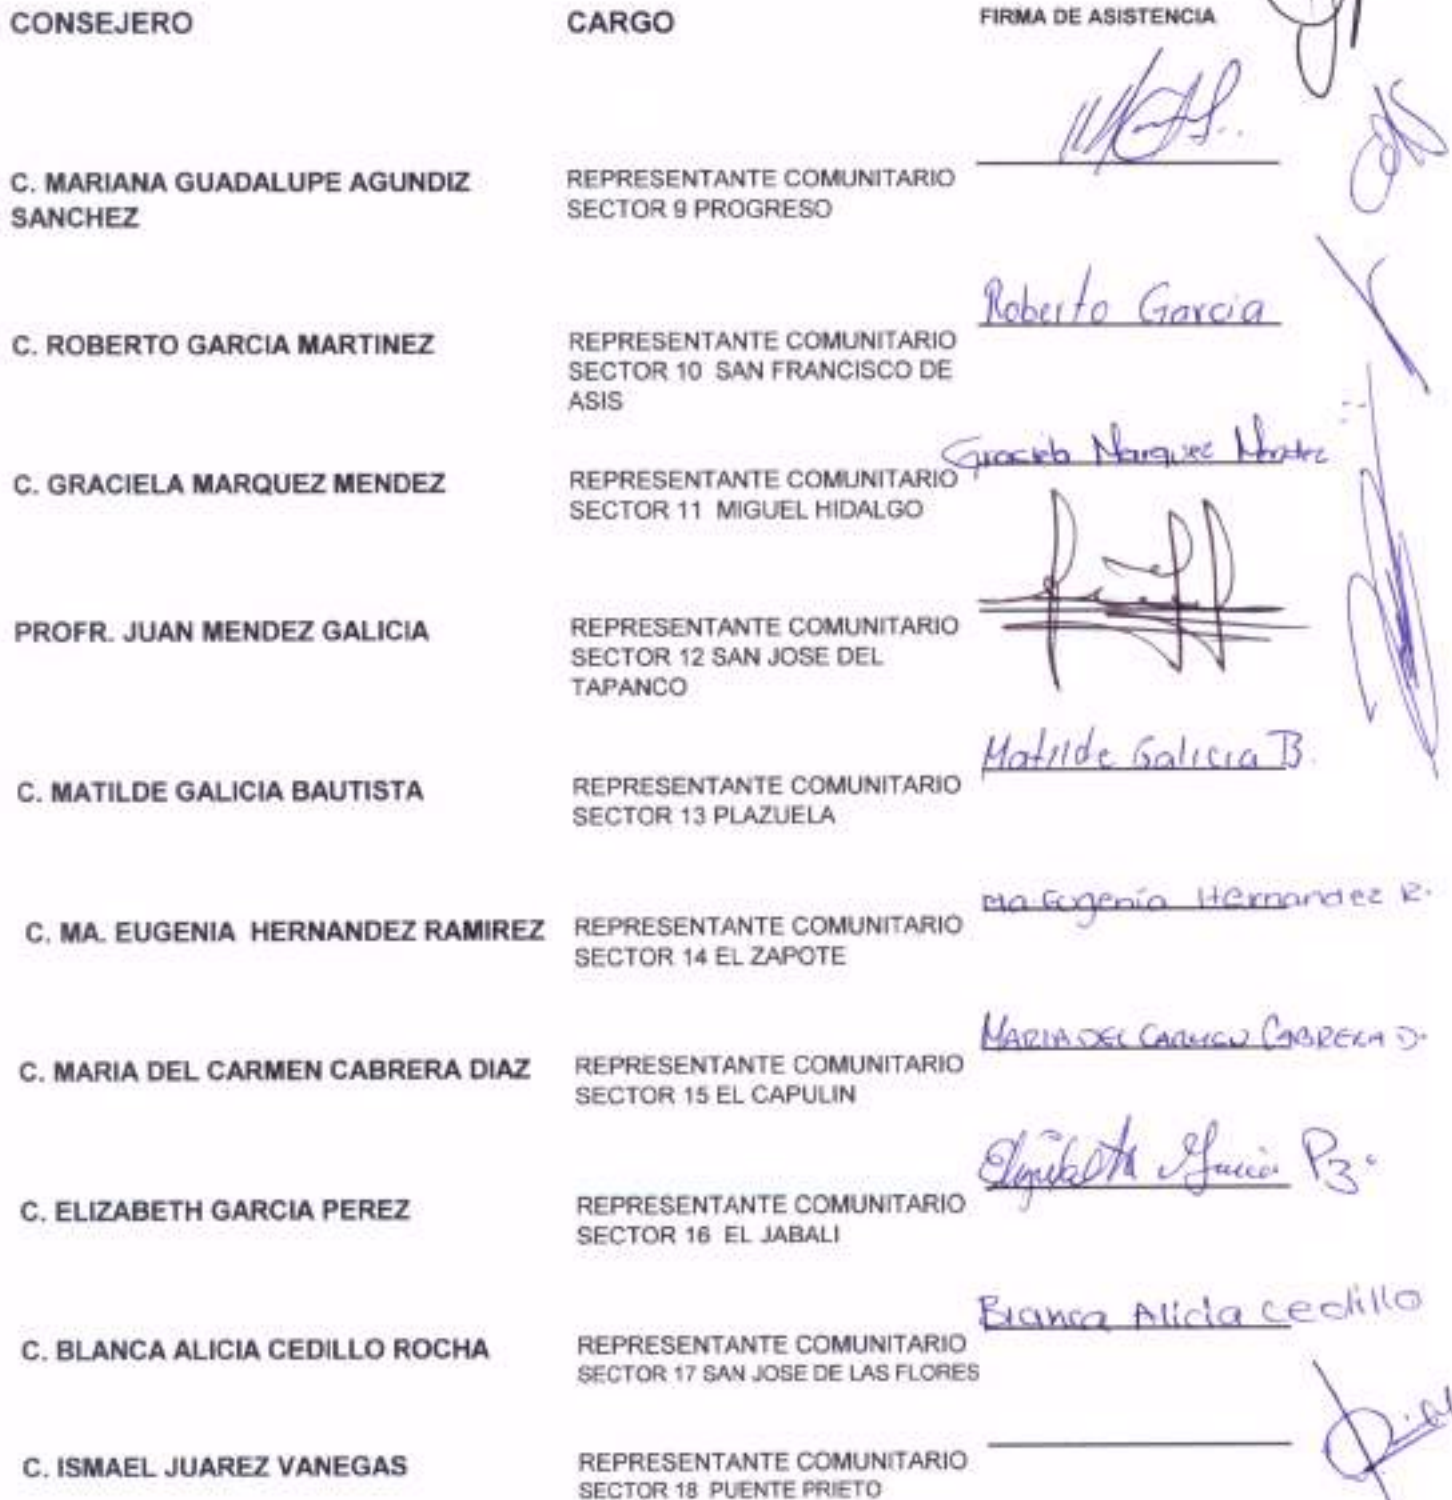 CONSEJERO CARGO FIRMA DE ASISTENCIA
C. MARIANA GUADALUPE AGUNDIZ SANCHEZ
REPRESENTANTE COMUNITARIO
SECTOR 9 PROGRESO
Roberto Garcia
C. ROBERTO GARCIA MARTINEZ
REPRESENTANTE COMUNITARIO
SECTOR 10 SAN FRANCISCO DE
ASIS
Graciela Marquez Mendez
C. GRACIELA MARQUEZ MENDEZ
REPRESENTANTE COMUNITARIO
SECTOR 11 MIGUEL HIDALGO
PROFR. JUAN MENDEZ GALICIA
REPRESENTANTE COMUNITARIO
SECTOR 12 SAN JOSE DEL
TAPANCO
Matilde Galicia B.
C. MATILDE GALICIA BAUTISTA
REPRESENTANTE COMUNITARIO
SECTOR 13 PLAZUELA
Ma Eugenia Hernandez R.
C. MA. EUGENIA HERNANDEZ RAMIREZ
REPRESENTANTE COMUNITARIO
SECTOR 14 EL ZAPOTE
MARIA DEL CARMEN CABRERA D.
C. MARIA DEL CARMEN CABRERA DIAZ
REPRESENTANTE COMUNITARIO
SECTOR 15 EL CAPULIN
Elizabeth Garcia Pz.
C. ELIZABETH GARCIA PEREZ
REPRESENTANTE COMUNITARIO
SECTOR 16 EL JABALI
Blanca Alicia Cedillo
C. BLANCA ALICIA CEDILLO ROCHA
REPRESENTANTE COMUNITARIO
SECTOR 17 SAN JOSE DE LAS FLORES
C. ISMAEL JUAREZ VANEGAS
REPRESENTANTE COMUNITARIO
SECTOR 18 PUENTE PRIETO